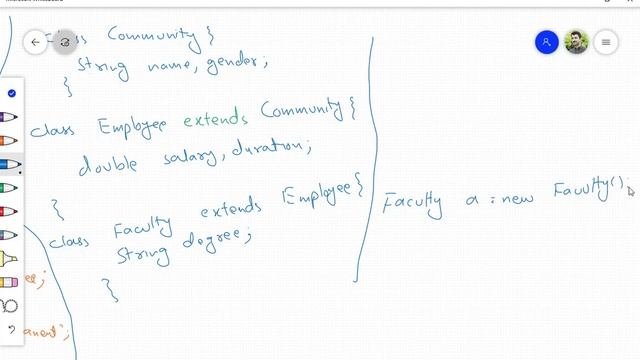 class Community {
String name, gender;
}
class Employee extends Community {
double salary, duration;
}
class Faculty extends Employee {
String degree;
}
Faculty a = new Faculty();